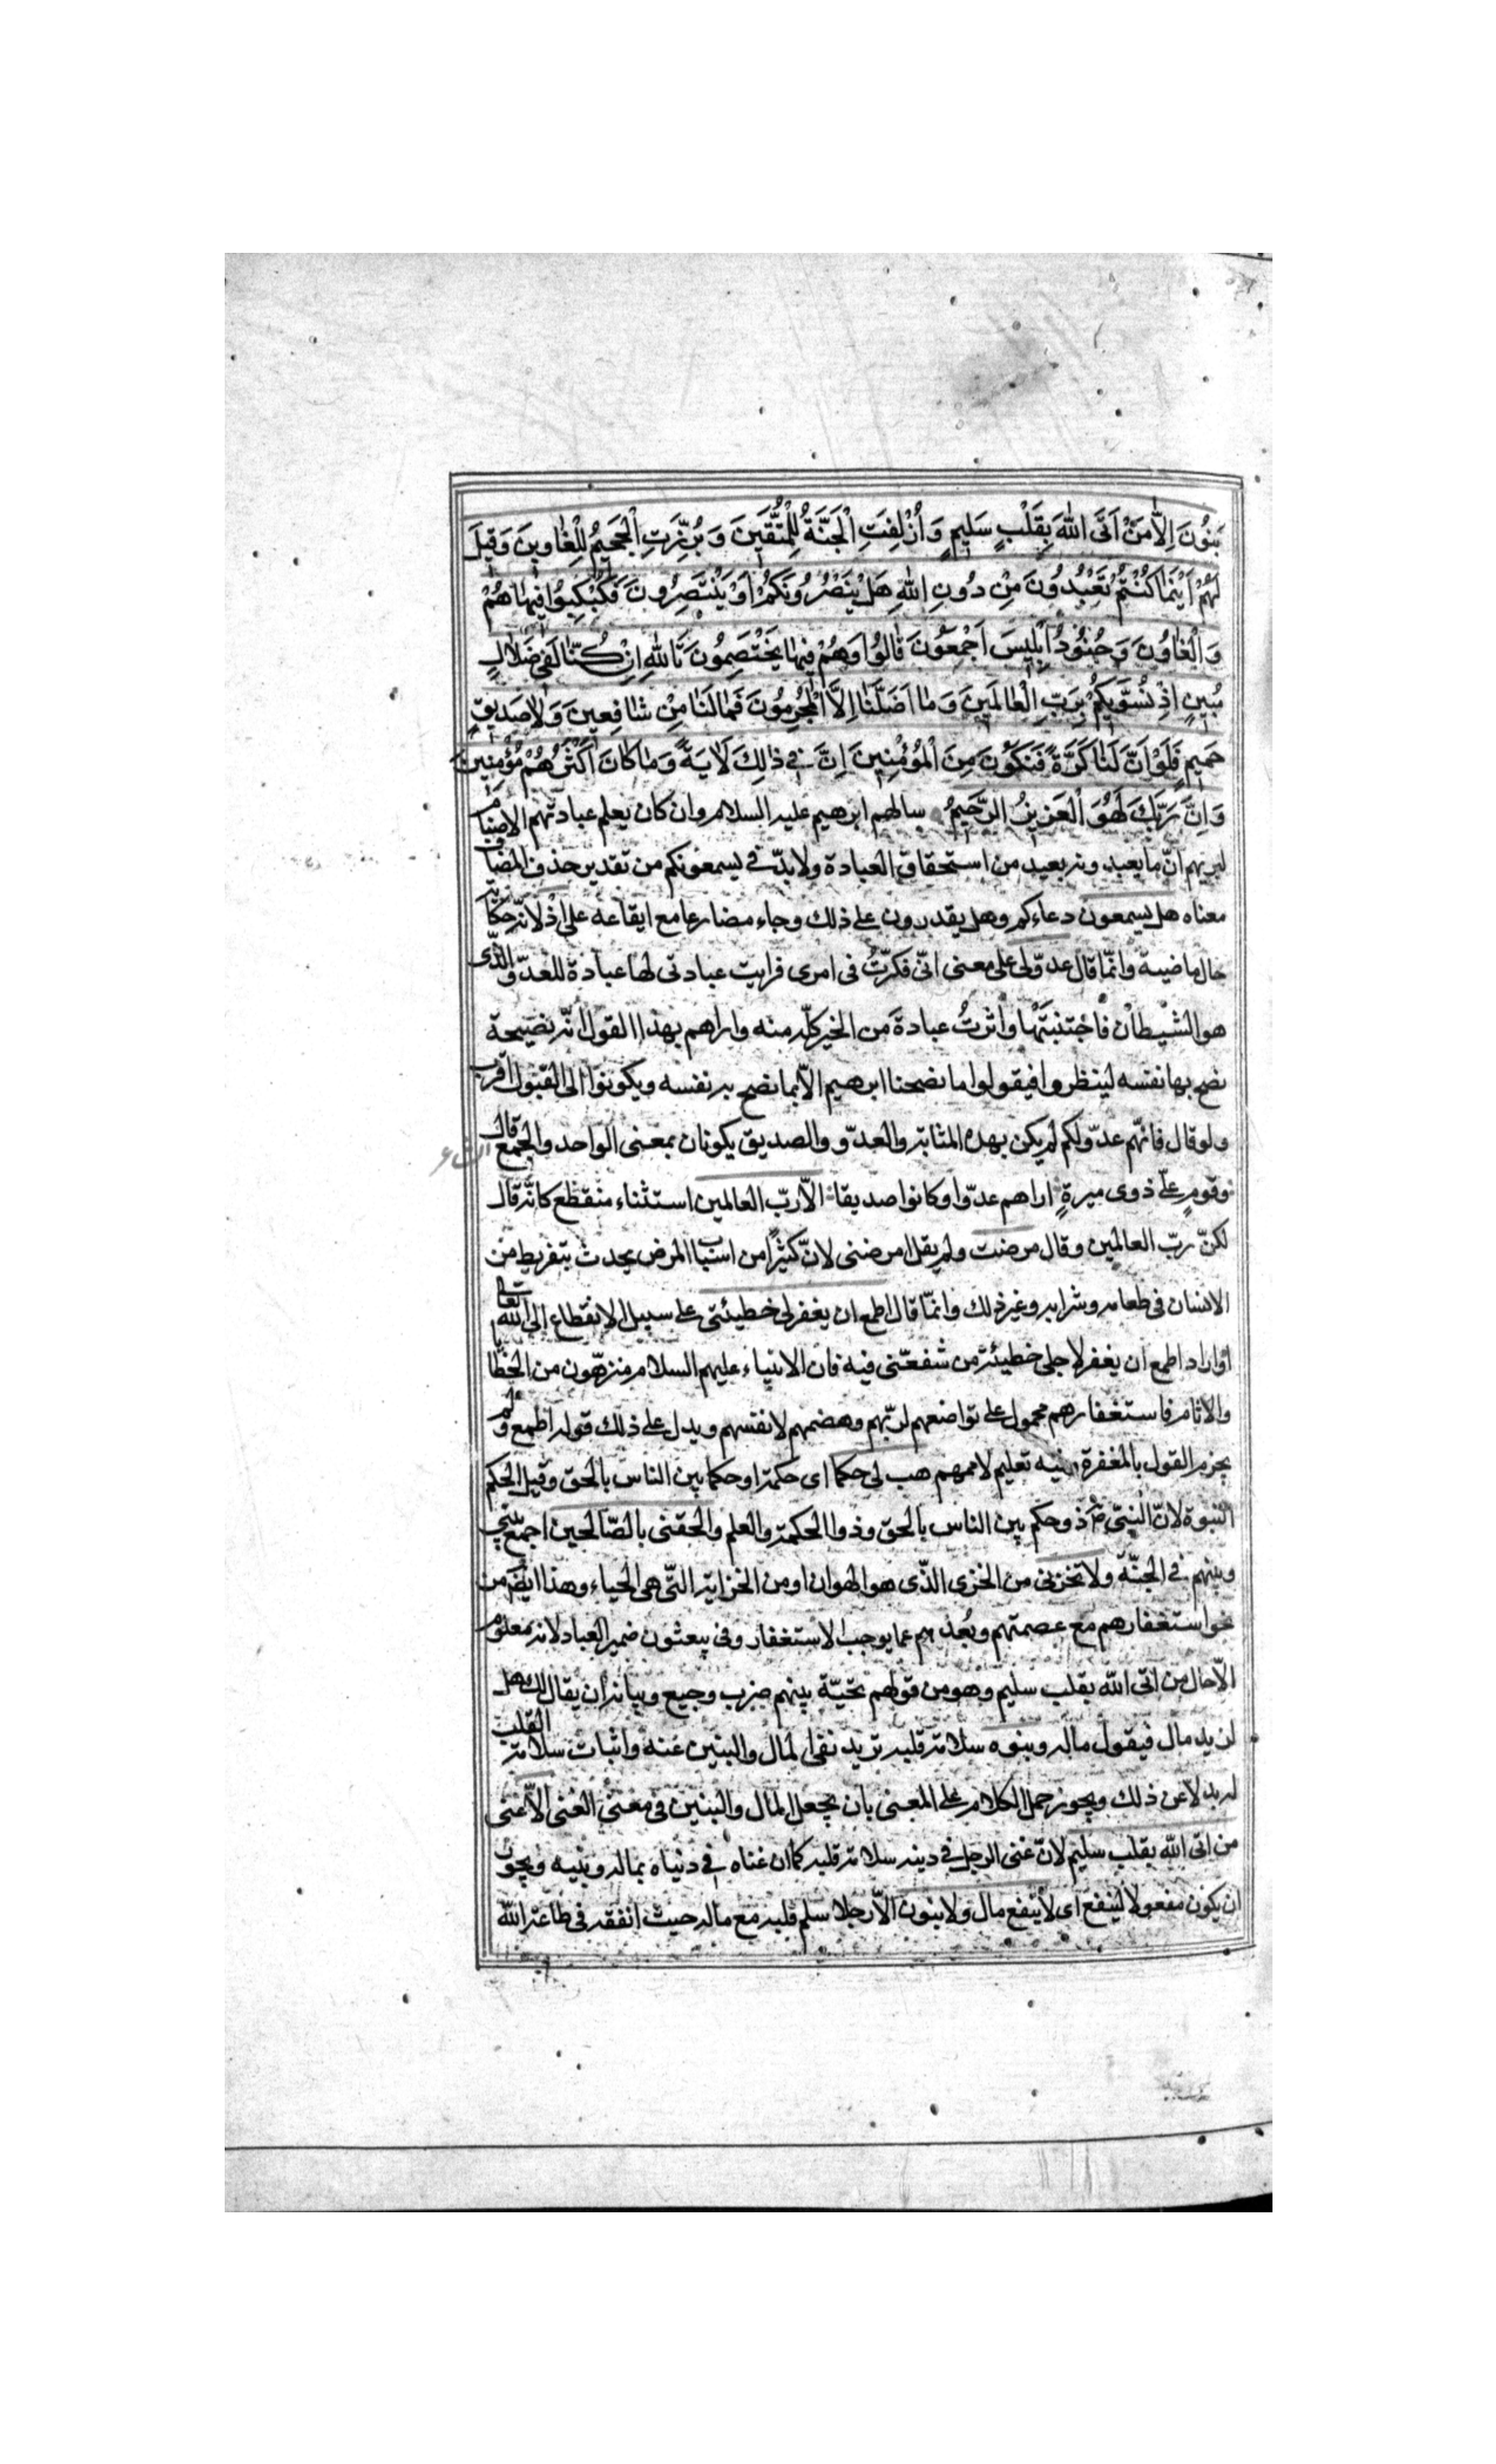 بَنُونَ اِلَّا مَنْ اَتَى اللّٰهَ بِقَلْبٍ سَلِيمٍ وَ اُزْلِفَتِ الْجَنَّةُ لِلْمُتَّقِينَ وَ بُرِّزَتِ الْجَحِيمُ لِلْغاوِينَ وَ قِيلَ
لَهُمْ اَيْنَما كُنْتُمْ تَعْبُدُونَ مِنْ دُونِ اللّٰهِ هَلْ يَنْصُرُونَكُمْ اَوْ يَنْتَصِرُونَ فَكُبْكِبُوا فِيها هُمْ
وَ الْغاوُنَ وَ جُنُودُ اِبْلِيسَ اَجْمَعُونَ قالُوا وَهُمْ فِيها يَخْتَصِمُونَ تَاللّٰهِ اِنْ كُنّا لَفِي ضَلالٍ
مُبِينٍ اِذْ نُسَوِّيكُمْ بِرَبِّ الْعالَمِينَ وَ ما اَضَلَّنا اِلَّا الْمُجْرِمُونَ فَمالَنا مِنْ شافِعِينَ وَلا صَدِيقٍ
حَمِيمٍ فَلَوْ اَنَّ لَنا كَرَّةً فَنَكُونَ مِنَ الْمُؤْمِنِينَ اِنَّ فِي ذلِكَ لَايَةً وَ ما كانَ اَكْثَرُهُمْ مُؤْمِنِينَ
وَ اِنَّ رَبَّكَ لَهُوَ الْعَزِيزُ الرَّحِيمُ سالهم ابرهيم عليه السلام وان كان يعلم عبادتهم الاصنام
ليريهم انّ ما يعبدونه بعيد من استحقاق العبادة ولا بدّ فى يسمعونكم من تقدير حذف المضاف
معناه هل يسمعون دعاءكم وهل يقدرون على ذلك وجاء مضارعا مع ايقاعه على اذ لانّه حكاية
حال ماضية وانّما قال عدوّ لى على معنى انّى فكرّتُ فى امرى فرايت عبادتى لها عبادة للعدوّ الّذى
هو الشيطان فاجتنبتها واثرتُ عبادة من الخير كلّه منه واراهم بهذا القول انّه نصيحة
نصح بها نفسه لينظروا فيقولوا ما نصحنا ابرهيم الاّ بما نصح به نفسه ويكونوا الى القبول اقرب
ولو قال فانّهم عدوّ لكم لم يكن بهذه المثابة والعدوّ والصديق يكونان بمعنى الواحد والجمع قال
وقومٍ علىّ ذوى ميرةٍ اراهم عدوّا وكانوا صديقا الاّ ربّ العالمين استثناء منقطع كانّه قال
لكنّ ربّ العالمين وقال مرضت ولم يقل امرضنى لانّ كثيرًا من اسباب المرض يحدث بتفريط من
الانسان فى طعامه وشرابه وغير ذلك وانّما قال اطمع ان يغفر لى خطيئتى على سبيل الانقطاع الى اللّه تعالى
او اراد اطمع ان يغفر لاجلى خطيئة من شفعّنى فيه فان الانبياء عليهم السلام منزهّون من الخطايا
والاثام فاستغفارهم محمول على تواضعهم لربّهم وهضمهم لانفسهم ويدل على ذلك قوله اطمع ولم
يجزم القول بالمغفرة وفيه تعليم لاممهم هب لى حكما اى حكمة او حكما بين الناس بالحق وقيل الحكم
النبوة لانّ النبىّ ذو حكم بين الناس بالحق وذوا الحكمة والعلم والحقنى بالصّالحين اجمع بينى
وبينهم فى الجنّة ولا تخزنى من الخزى الّذى هو الهوان او من الخزاية الّتى هى الحياء وهذا ايضا من
نحو استغفارهم مع عصمتهم وبُعدهم عما يوجب الاستغفار وفى يبعثون ضمير العباد لانه معلوم
الاّ حال من اتى اللّه بقلب سليم وهو من قولهم تحيّة بينهم ضرب وجيع وبيانه ان يقال لك هل
لزيد مال فيقول ماله وبنوه سلامة قلبه تريد نفى المال والبنين عنه واثبات سلامة القلب
له بدلا عن ذلك ويجوز حمل الكلام على المعنى بان يجعل المال والبنين فى معنى الغنى الاّ غنى
من اتى اللّه بقلب سليم لانّ غنى الرجل فى دينه سلامة قلبه كما ان غناه فى دنياه بماله وبنيه ويجوز
ان يكون مفعولا لينفع اى لا ينفع مال ولا بنون الاّ رجلا سلم قلبه مع ماله حيث انفقه فى طاعة اللّه